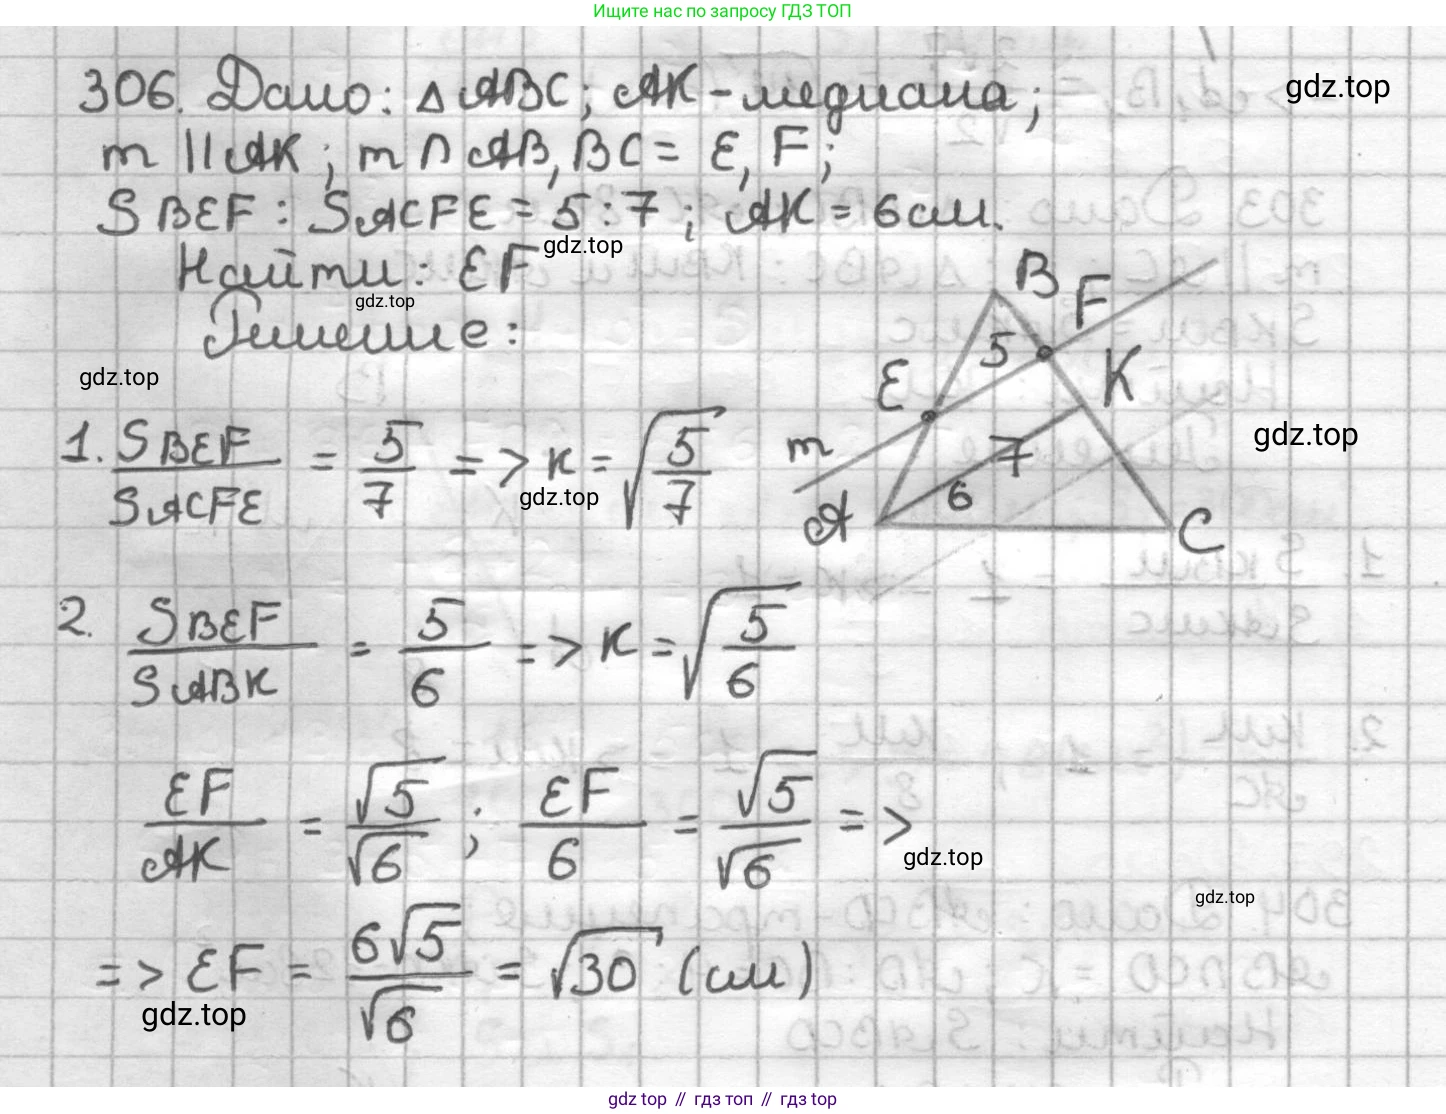 Ищите нас по запросу ГДЗ ТОП
306. Дано: △ABC; AK - медиана;
gdz.top
m || AK; m ∩ AB, BC = E, F;
S BEF : S ACFE = 5 : 7; AK = 6 см.
gdz.top
Найти: EF
gdz.top
Решение:
gdz.top
B F
5
E K
gdz.top
m 7
6
A C
1. S BEF / S ACFE = 5/7 => k = √(5/7)
gdz.top
2. S BEF / S ABK = 5/6 => k = √(5/6)
EF/AK = √5/√6 ; EF/6 = √5/√6 =>
gdz.top
gdz.top
=> EF = 6√5/√6 = √30 (см)
gdz.top
gdz top // гдз топ // gdz top